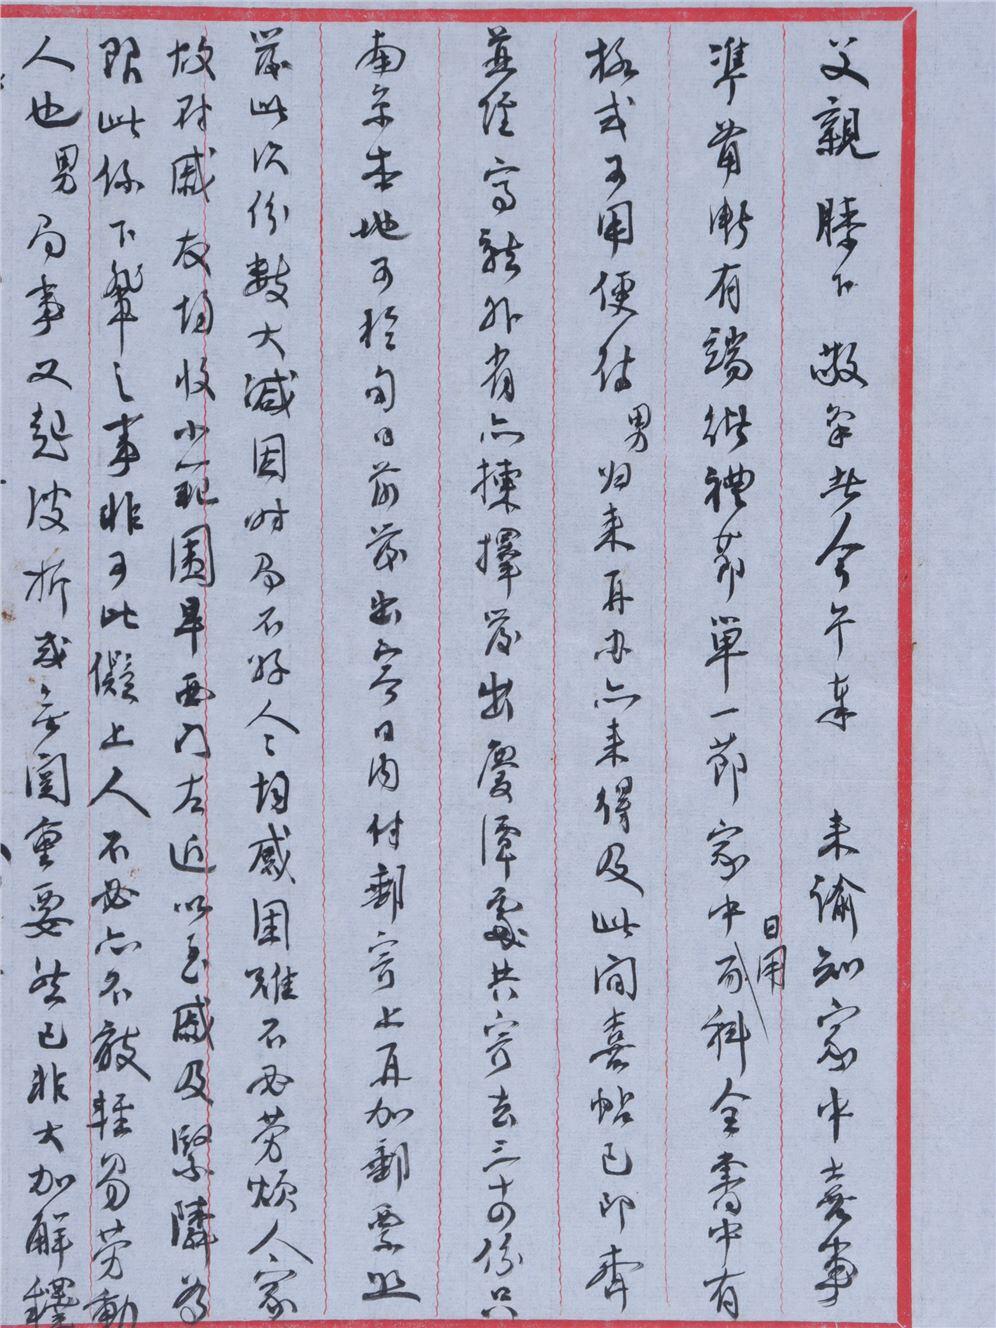 父親膝下敬稟者今午奉　来諭知家中喜事
準備漸有端緒禮節單一節家中日用百科全書中有
格式可用便待男归来再办亦未得及此间喜帖已印齊
並經寫就外省亦揀擇發出慶潭處共寄去三十份只
南京本地可於旬日前發出今日内付郵寄上再加郵票
發此次份數大減因时局不好人人均感困難不必勞煩人家
故对戚友均收小範圍單西门左近以至戚及緊隣為
限此係下輩之事非可比儗上人不必亦不敢輕易劳動
人也男局事又起波折或無関重要然已非大加解釋